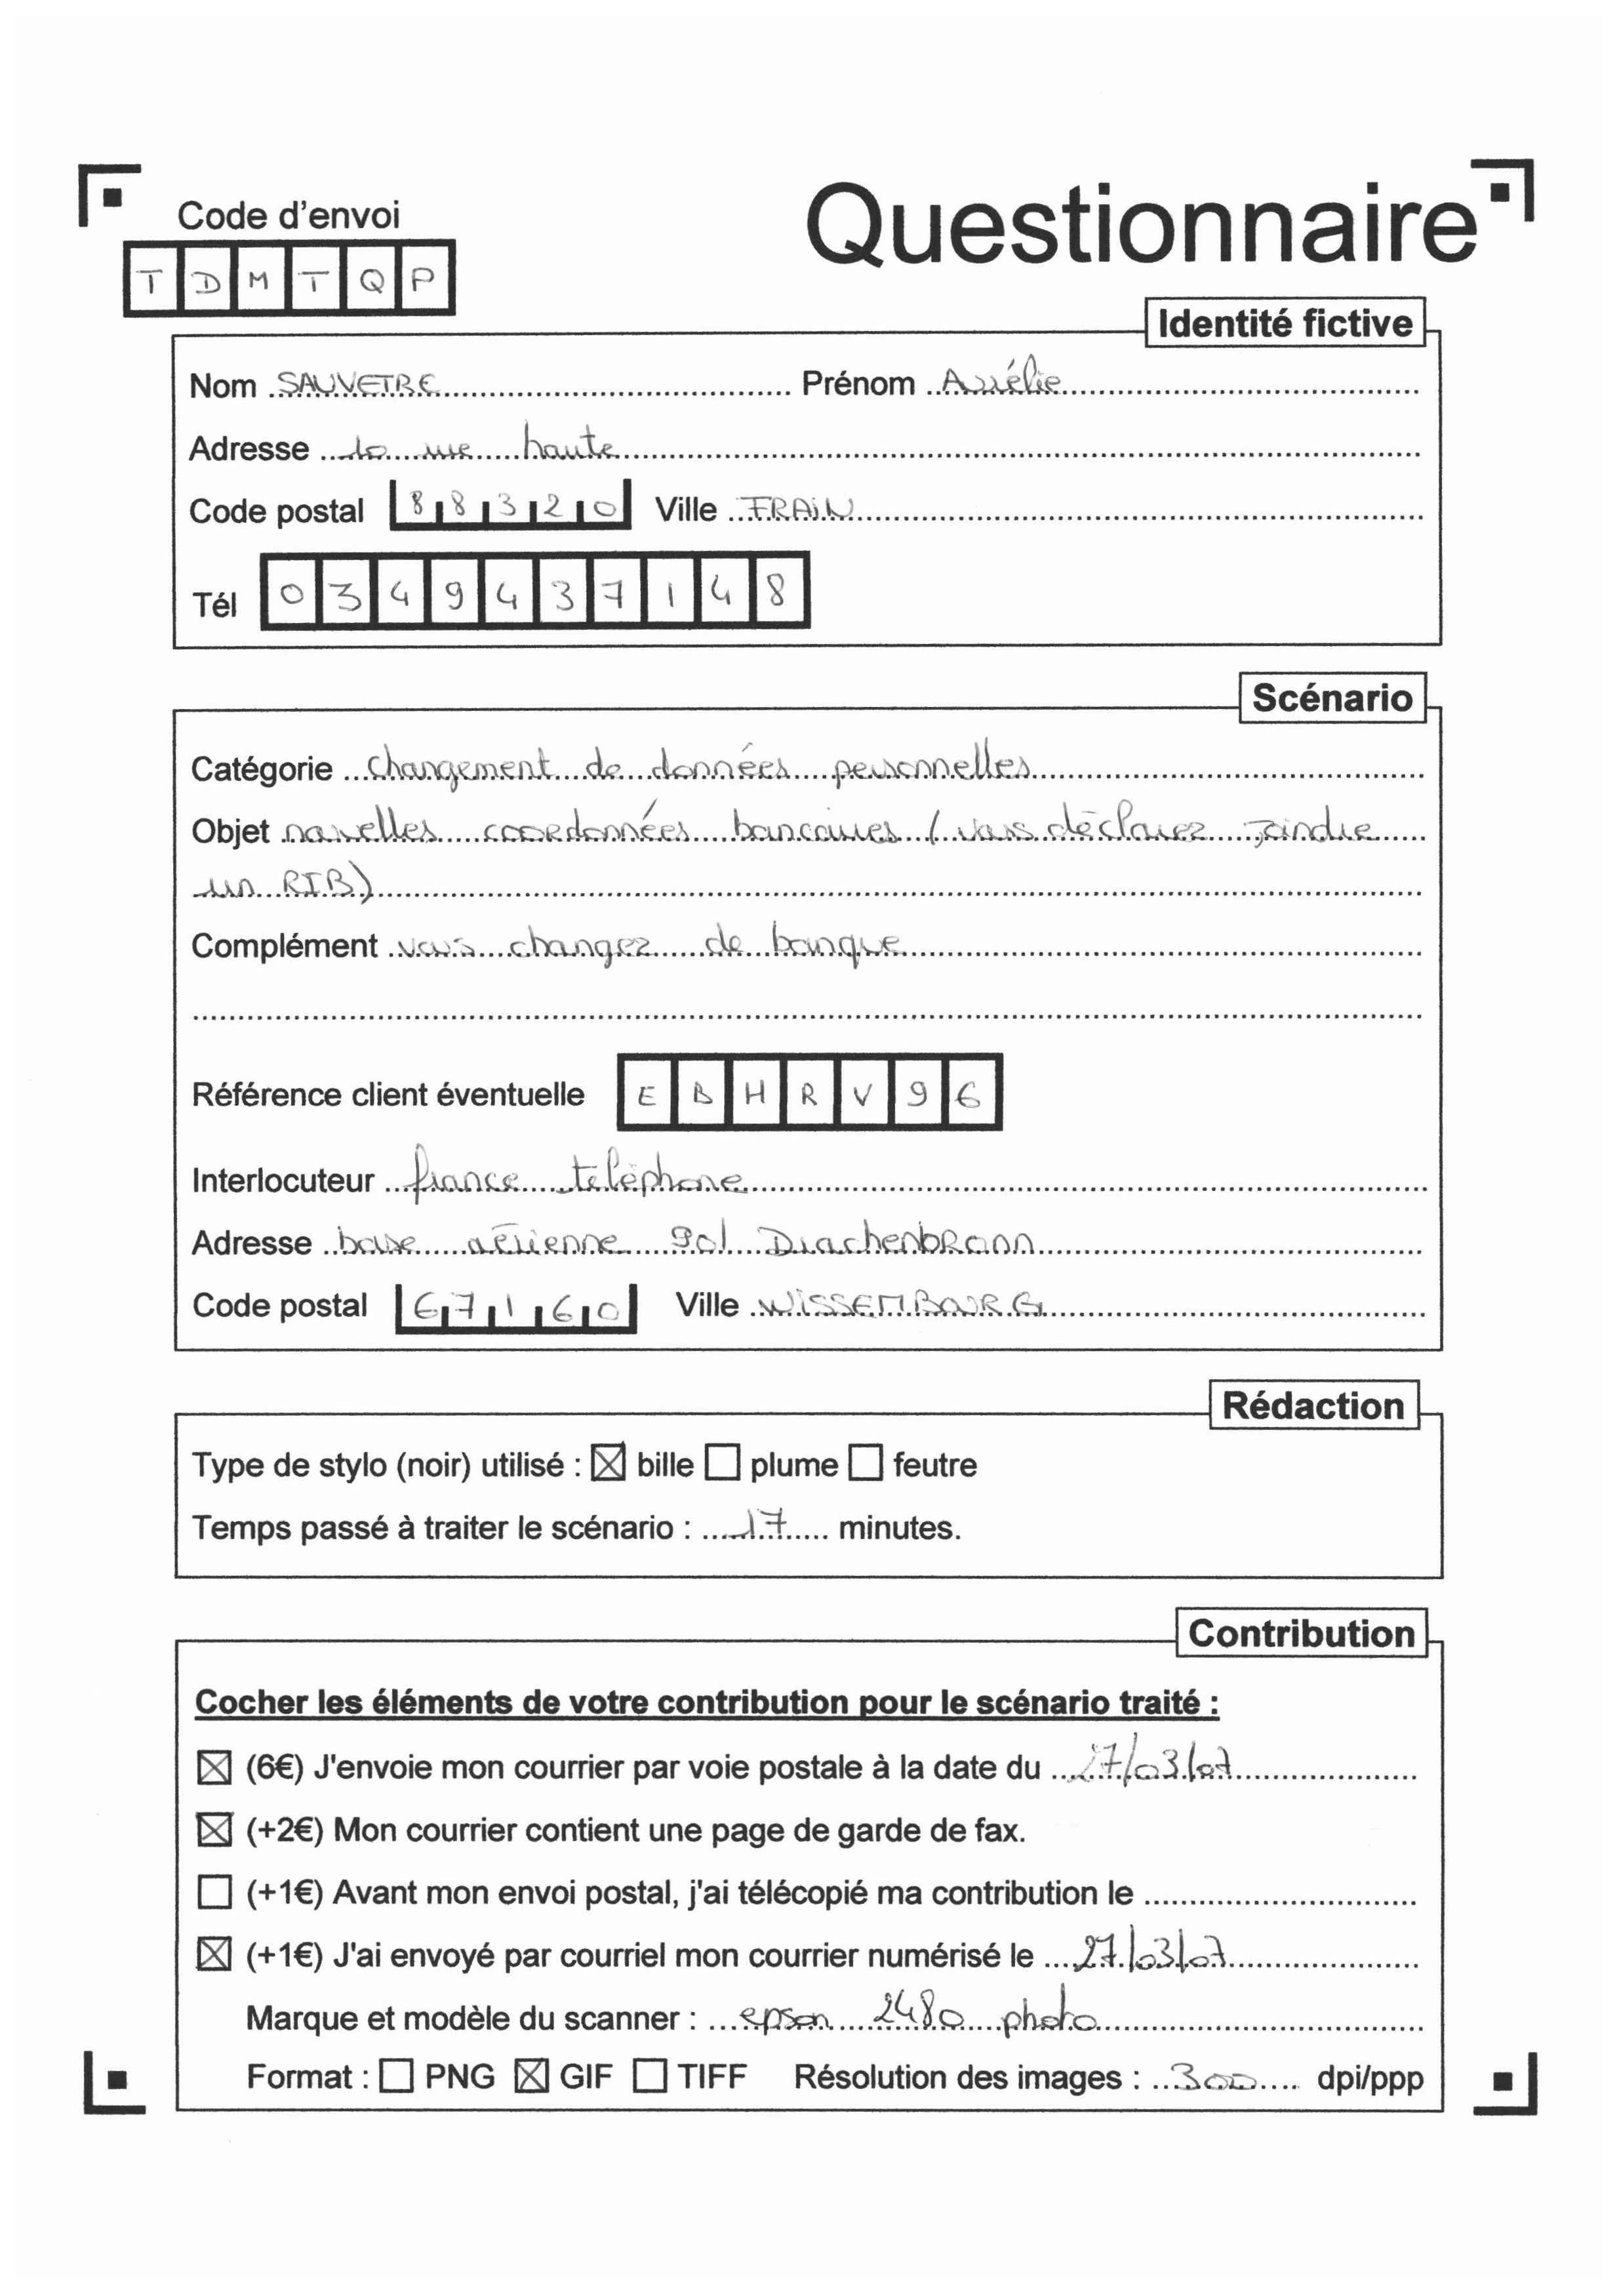 Code d'envoi
Questionnaire
T D M T Q P
Identité fictive
Nom SAUVETRE Prénom Aurélie
Adresse 10 rue haute
Code postal 88320 Ville FRAIN
Tél 0349437148
Scénario
Catégorie changement de données personnelles
Objet nouvelles coordonnées bancaires (vous déclarez joindre
un RIB)
Complément vous changez de banque
Référence client éventuelle E B H R V 9 6
Interlocuteur france téléphone
Adresse base aérienne 901 Drachenbronn
Code postal 67160 Ville WISSEMBOURG
Rédaction
Type de stylo (noir) utilisé : ☒ bille ☐ plume ☐ feutre
Temps passé à traiter le scénario : 17 minutes.
Contribution
Cocher les éléments de votre contribution pour le scénario traité :
☒ (6€) J'envoie mon courrier par voie postale à la date du 27/03/07
☒ (+2€) Mon courrier contient une page de garde de fax.
☐ (+1€) Avant mon envoi postal, j'ai télécopié ma contribution le
☒ (+1€) J'ai envoyé par courriel mon courrier numérisé le 27/03/07
Marque et modèle du scanner : epson 2480 photo
Format : ☐ PNG ☒ GIF ☐ TIFF Résolution des images : 300 dpi/ppp